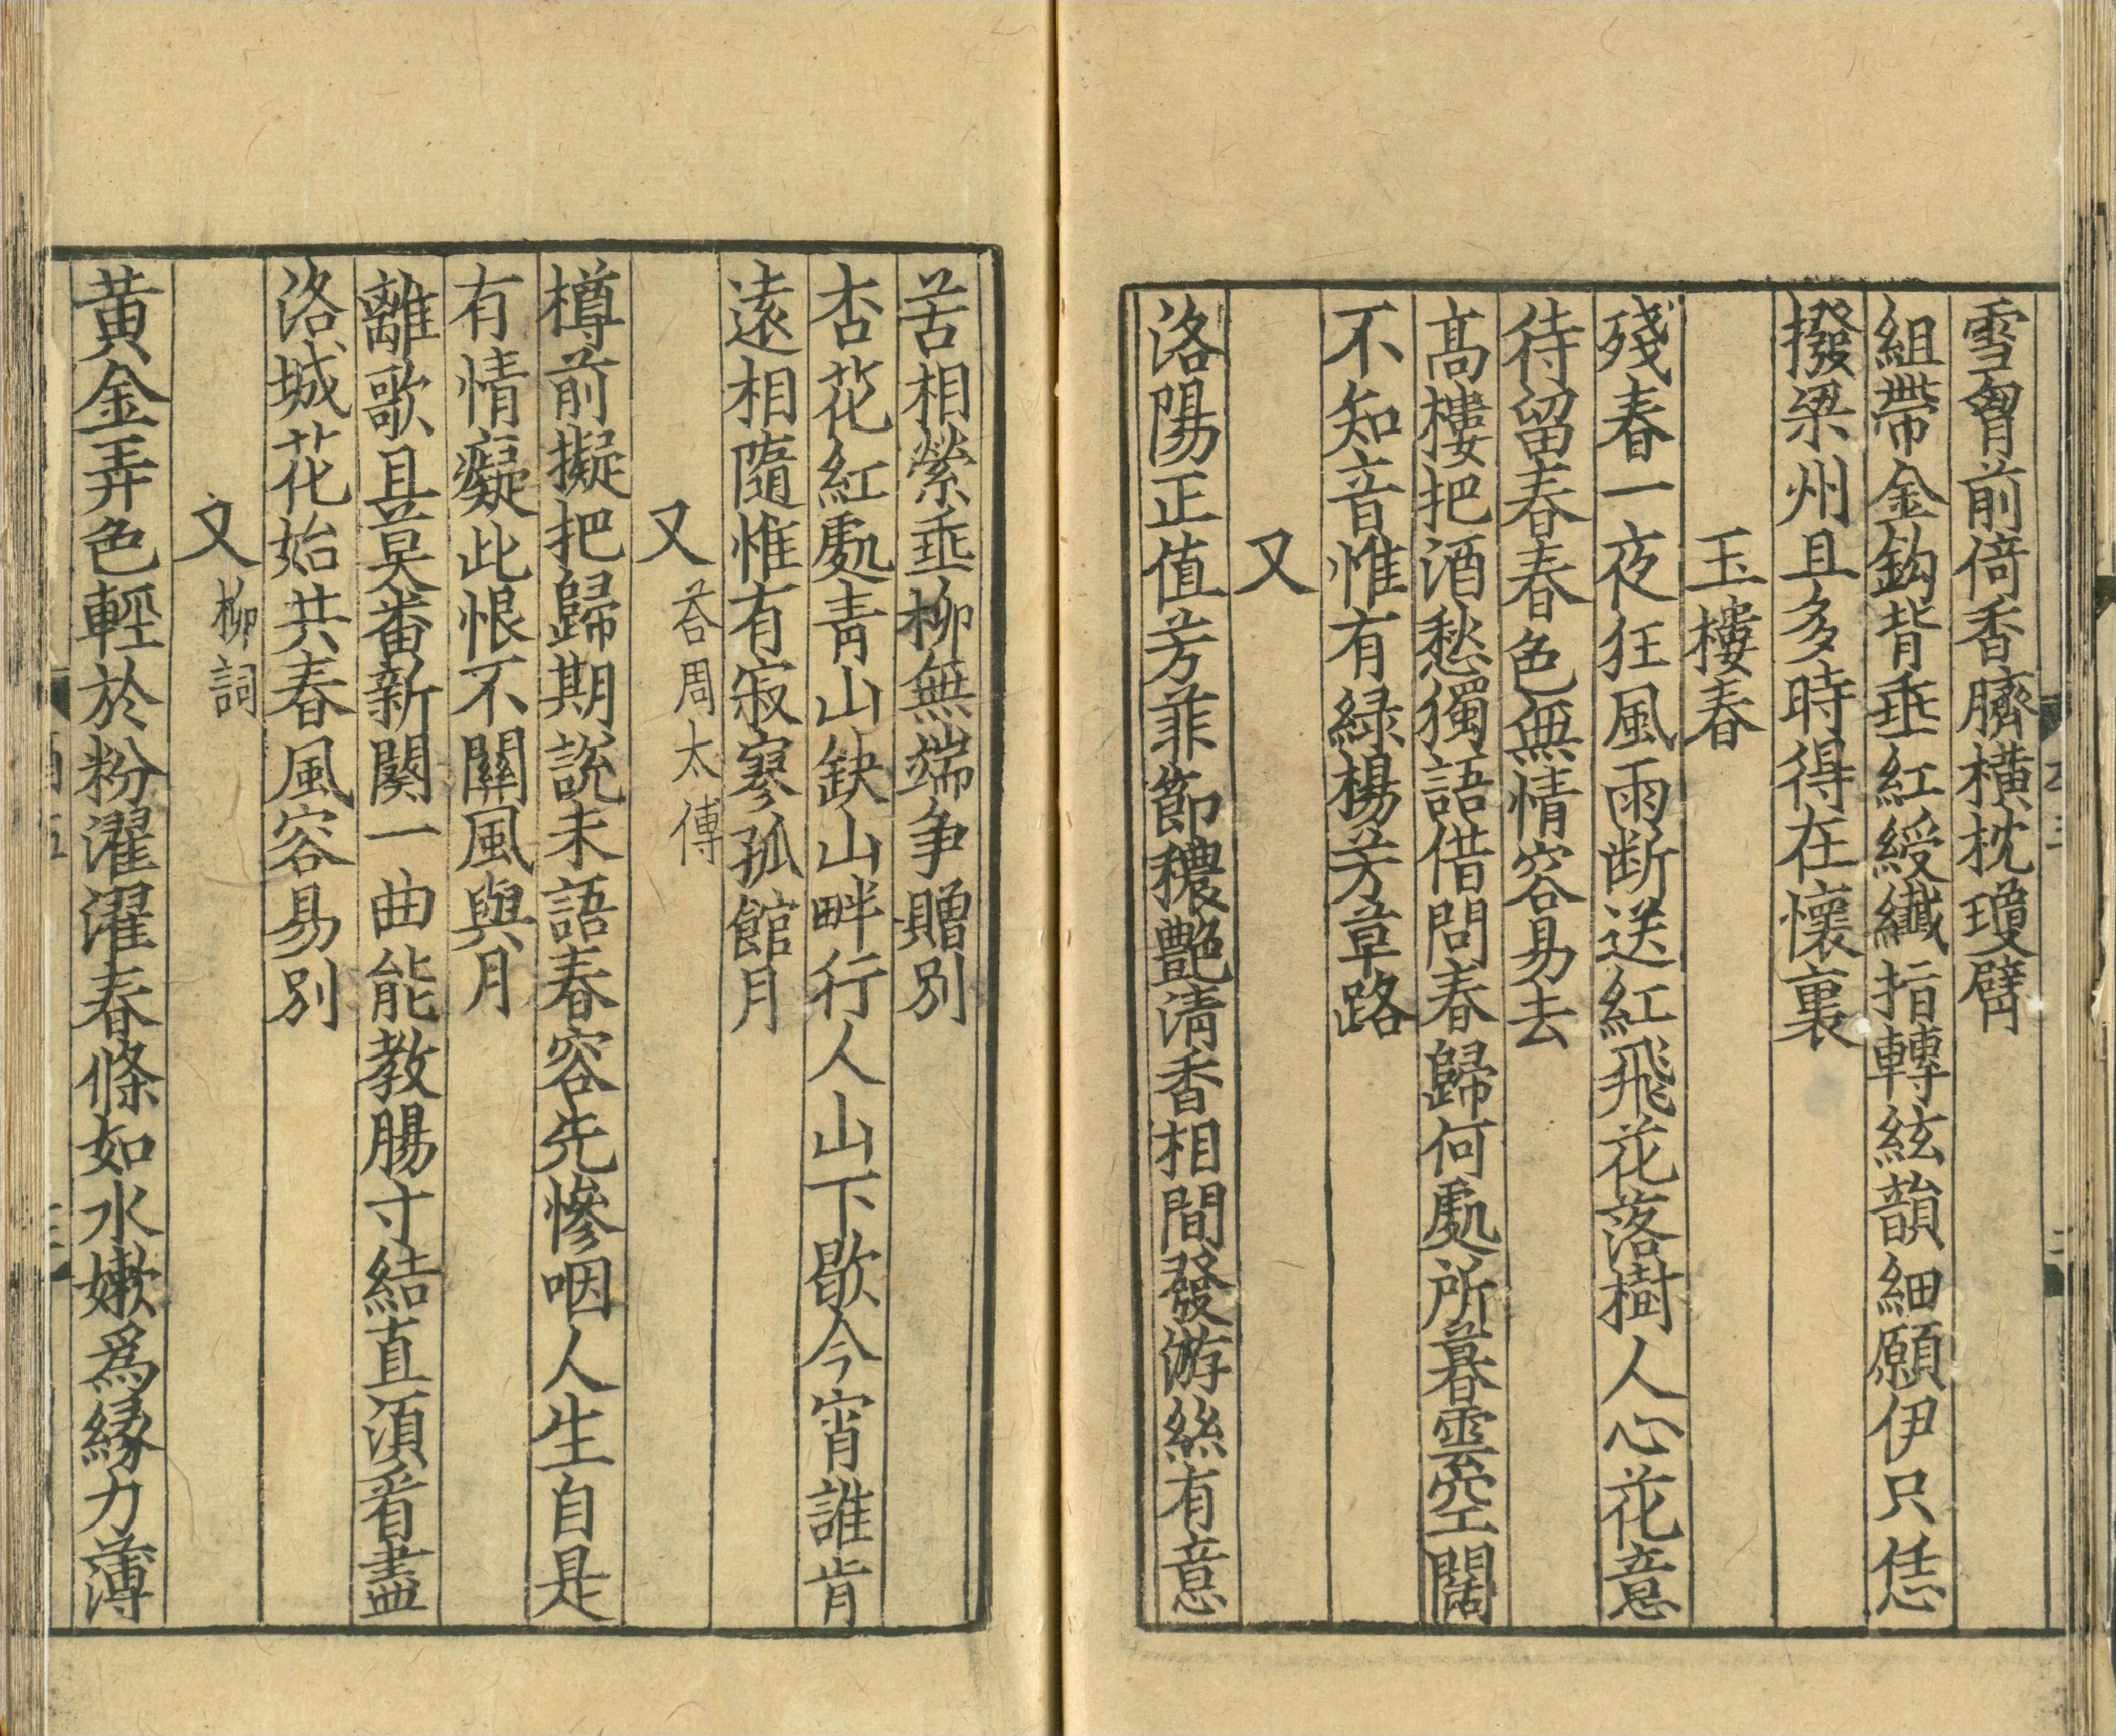 雪胷前倚香臍橫枕瓊臂
組帶金鈎背垂紅綬纎指轉絃韻細願伊只恁
撥梁州且多時得在懷裏
玉樓春
殘春一夜狂風雨断送紅飛花落樹人心花意
待留春春色無情容易去
髙樓把酒愁獨語借問春歸何處所暮雲空闊
不知音惟有緑楊芳草路
又
洛陽正值芳菲節穠艶清香相間發游絲有意
苦相縈垂柳無端争贈別
杏花紅處青山缺山畔行人山下歇今宵誰肯
遠相隨惟有寂寥孤館月
又 荅周太傅
樽前擬把歸期說未語春容先慘咽人生自是
有情癡此恨不關風與月
離歌且莫翻新闋一曲能教腸寸結直須看盡
洛城花始共春風容易別
又 柳詞
黄金弄色輕於粉濯濯春條如水嫩爲縁力薄